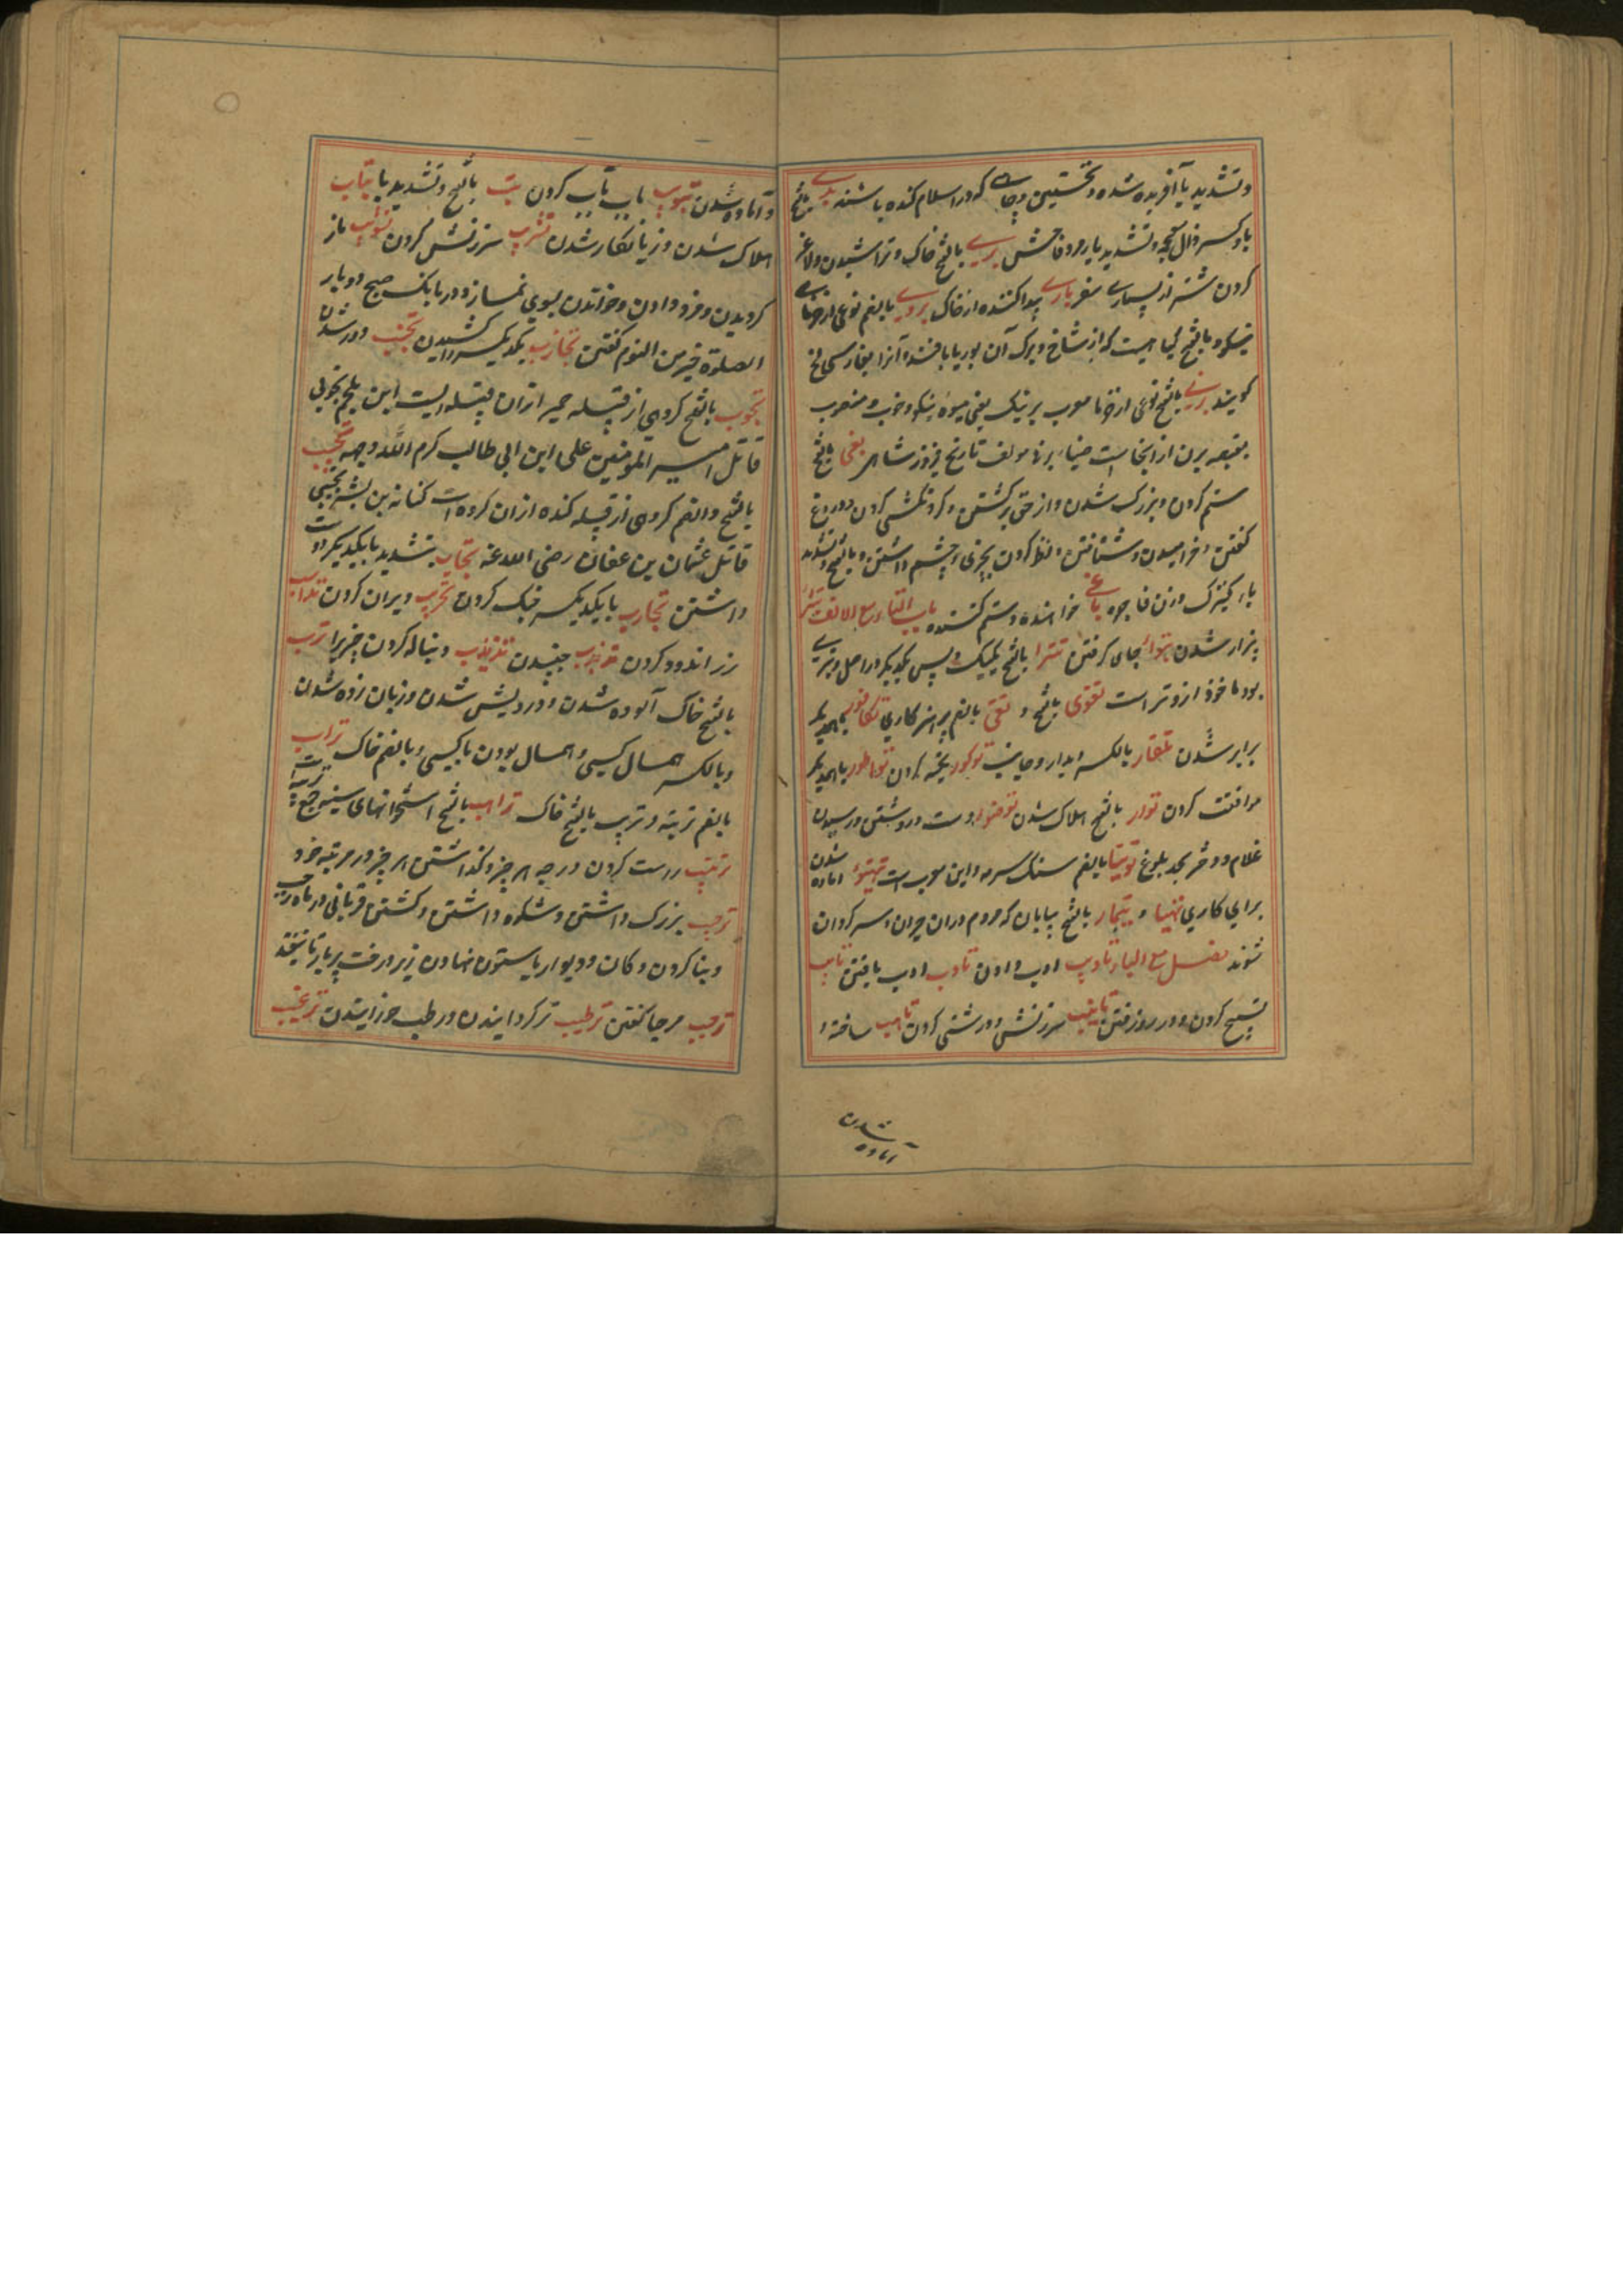 وتشدید یا آفریده شده و نخستین و چاهی که در اسلام کنده باشند بدی بالفتح
با و کسر ذال معجمه و تشدید یا مرد فاحش بری بالفتح خاک و تراشیدن و لاغر
کردن شتر از بسیاری سفر باری پیدا کننده از خاک بالضم نوعی از خرمای
نیکو و بالفتح گیاهیست که از شاخ و برگ آن بوریا بافند و آنرا بفارسی لخ
گویند برنی بالفتح نوعی از خرما معرب برنیک یعنی میوه نیکو و خوب و منسوب
بقصبه برن از انجاست ضیاء برنی مولف تاریخ فیروز شاهی بغی بالفتح
ستم کردن و بزرگ شدن و از حق برگشتن و گردنکشی کردن و دروغ
گفتن و خرامیدن و شتافتن و نظر کردن بچیزی و چشم داشتن و بالفتح و تشدید
یا کنیزک و زن فاجره باغی خواهنده و ستم کننده باب التاء مع الالف تبرا
بیزار شدن تبوا جای گرفتن تترا بالفتح یکیک و پس یکدیگر در اصل وتری
بود ماخوذ از وتر است تقوی بالفتح و تقی بالضم پرهیزکاری تکافو با همدیگر
برابر شدن تلقاء بالکسر دیدار و جانب تکیه کردن با همدیگر
موافقت کردن توا بالفتح هلاک شدن توضو دست و رو شستن و رسیدن
غلام و دختر بحد بلوغ توتیا بالضم سنگ سرمه و این معرب است تهیو اماده شدن
برای کاری تهیا و تیها بالفتح بیابان که مردم دران حیران و سرگردان
شوند فصل مع الباء تادیب ادب دادن تادب ادب یافتن تاویب
تسبیح کردن و در روز رفتن تانیب سرزنش و درشتی کردن تاهب ساخته و
آماده شدن
و آماده شدن تبویب باب باب کردن تب بالفتح و تشدید با تباب
هلاک شدن و زیانکار شدن تثریب سرزنش کردن تثویب باز
گردیدن و مزد دادن و خواندن بسوی نماز و در بانگ صبح دو بار
الصلوة خیر من النوم گفتن تجاذب یکدیگر را کشیدن تجنب دور شدن
تجوب بالفتح گروهی از قبیله حمیر ازان قبیله ایست ابن ملجم تجوبی
قاتل امیر المومنین علی ابن ابی طالب کرم الله وجهه تجیب
بالفتح و الضم گروهی از قبیله کنده ازان گروه است کنانه بن بشر تجیبی
قاتل عثمان بن عفان رضی الله عنه تحاب بتشدید با یکدیگر دوست
داشتن تحارب با یکدیگر جنگ کردن تخریب ویران کردن تذهیب
زر اندود کردن تذبذب جنبیدن تذنیب دنباله کردن چیزیرا ترب
بالفتح خاک آلوده شدن و درویش شدن و زیان زده شدن
و بالکسر همسال کسی و همسال بودن با کسی و بالضم خاک تراب
بالضم تربة و تیرب بالفتح خاک ترایب بالفتح استخوانهای سینه جمع تریبة
ترتیب راست کردن درجه هر چیز و گذاشتن هر چیز در مرتبه خود
ترجیب بزرگ داشتن و شکوه داشتن و کشتن قربانی در ماه رجب
و بنا کردن دکان و دیوار یا ستون نهادن زیر درخت پربار تا نیفتد
ترحیب مرحبا گفتن ترطیب تر گردانیدن و رطب خورانیدن ترغیب